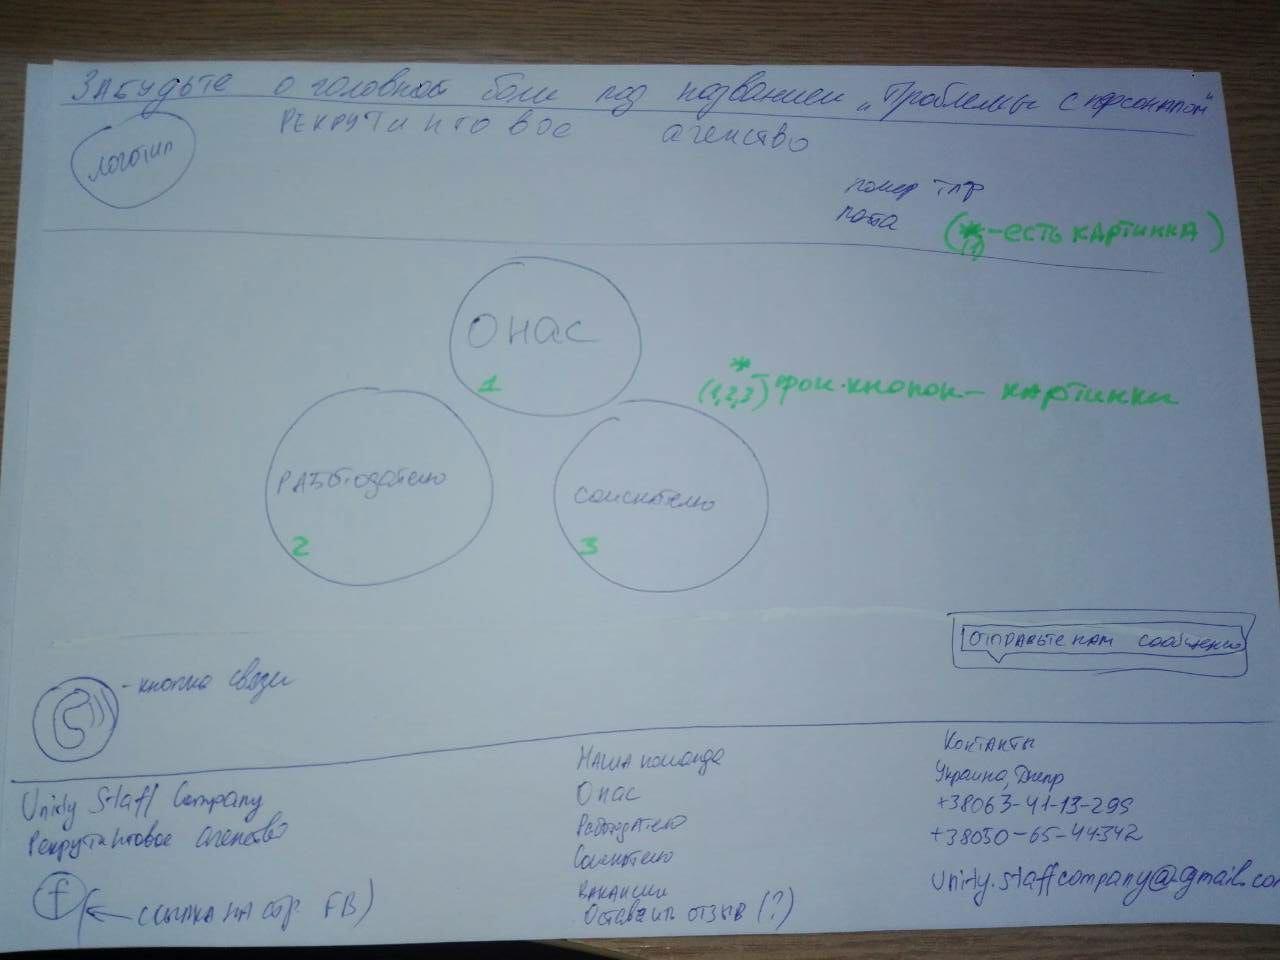 Забудьте о головной боли под названием "Проблемы с персоналом"
Рекрутинговое агенство
логотип
номер тлф
почта
(* - есть картинка)
(1)
О нас
1
*
(1,2,3) - фон кнопок - картинки
Работодателю
2
Соискателю
3
Отправьте нам сообщение
- кнопка связи
Unity Staff Company
Рекрутинговое агенство
f
ссылка на стр. FB)
Наша команда
О нас
Работодателю
Соискателю
Вакансии
Оставить отзыв (?)
Контакты
Украина, Днепр
+38063-41-13-295
+38050-65-44342
Unity.staffcompany@gmail.com